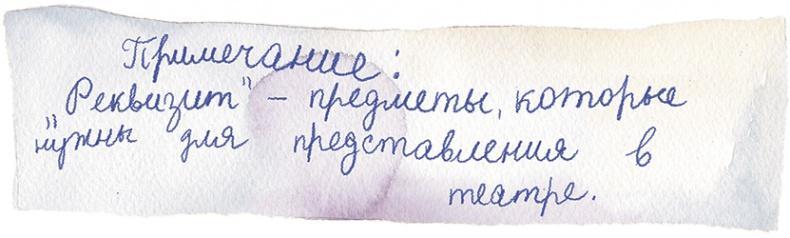 Примечание:
"Реквизит" – предметы, которые
нужны для представления в
театре.